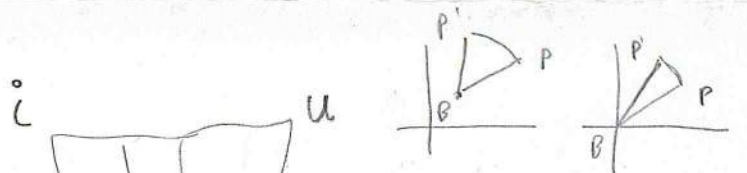 i u
P' P
B
P' P
B